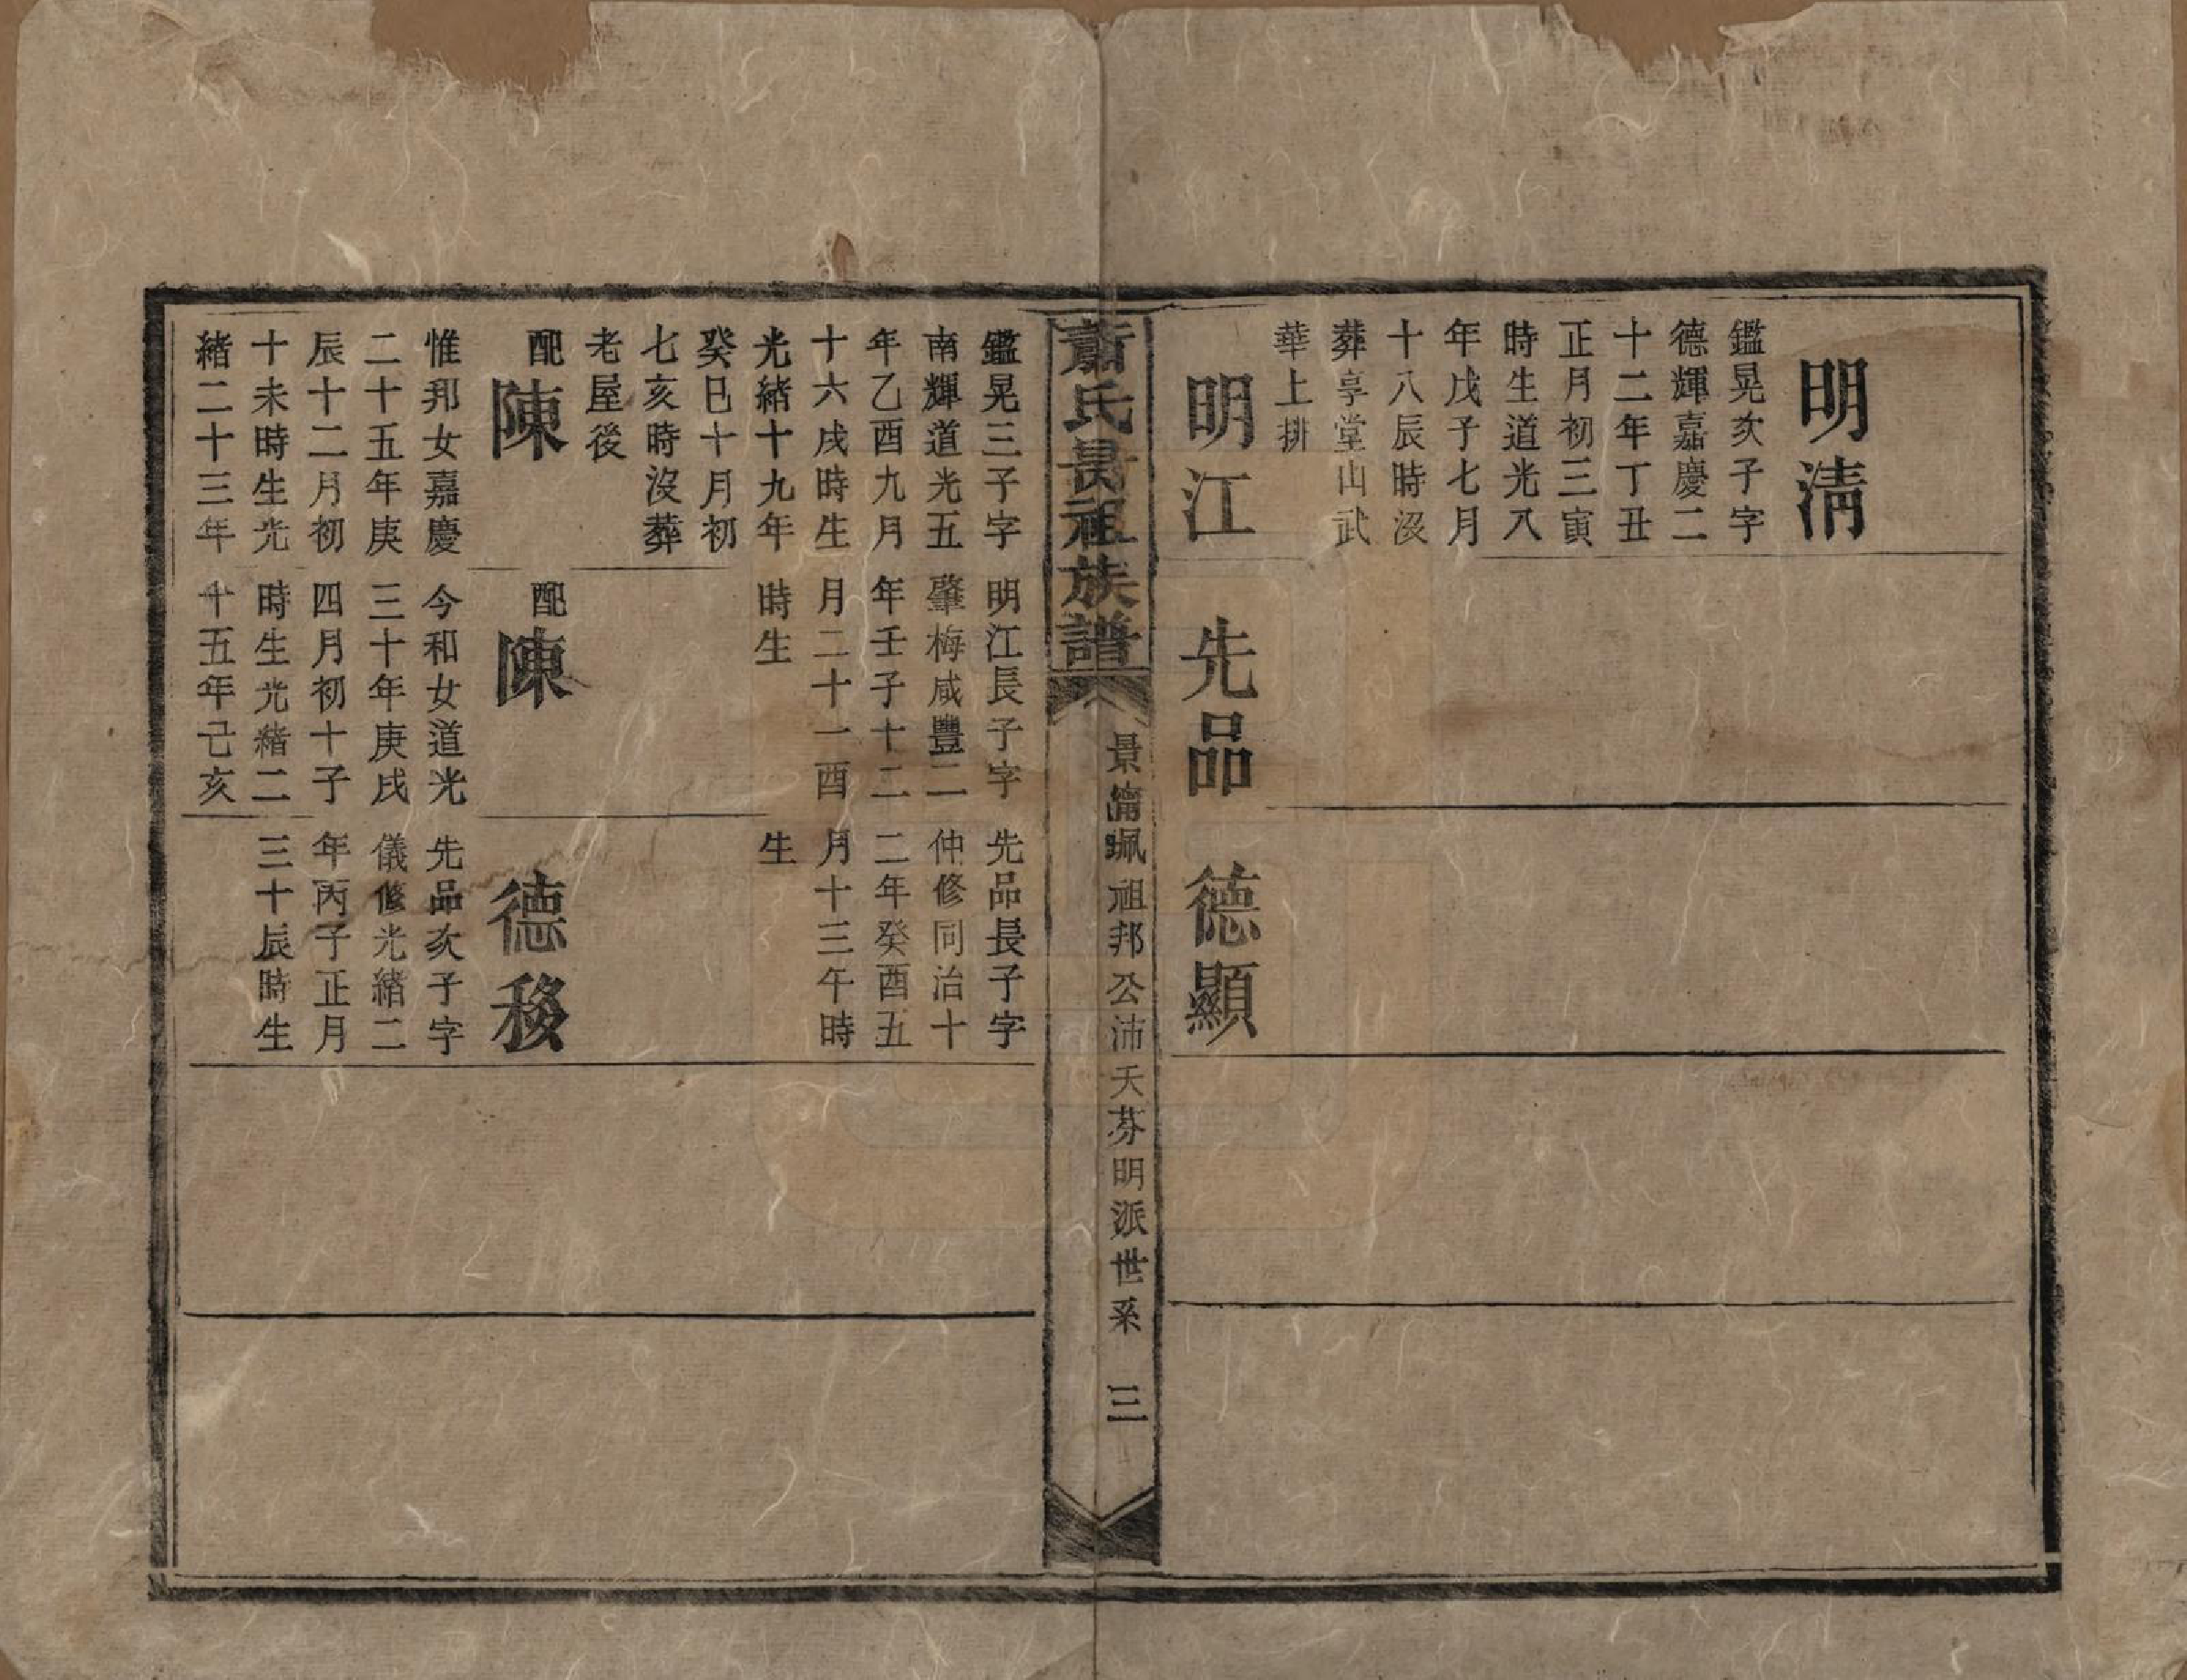 明清
鑑晃次子字
德輝嘉慶二
十二年丁丑
正月初三寅
時生道光八
年戊子七月
十八辰時沒
葬享堂山武
華上排
明江
先品
德顯
蕭氏長祖族譜
祖邦公沛天芬明派世系
三
鑑晃三子字
南輝道光五
年乙酉九月
十六戌時生
光緒十九年
癸巳十月初
七亥時沒葬
老屋後
配陳
惟邦女嘉慶
二十五年庚
辰十二月初
十未時生光
緒二十三年
明江長子字
肇梅咸豐二
年壬子十二
月二十一酉
時生
配陳
今和女道光
三十年庚戌
四月初十子
時生光緒二
十五年己亥
先品長子字
仲修同治十
二年癸酉五
月十三午時
生
德移
先品次子字
儀修光緒二
年丙子正月
三十辰時生